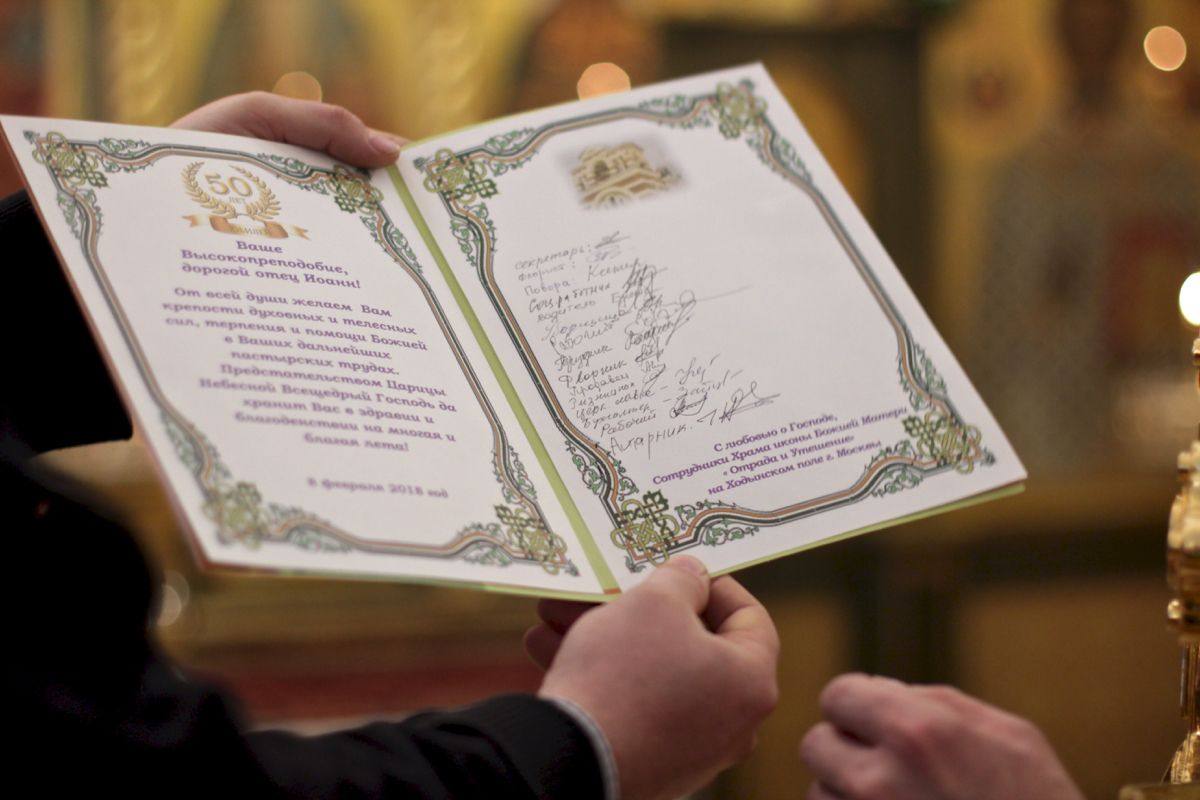 50
ЛЕТ
Ваше
Высокопреподобие,
дорогой отец Иоанн!
От всей души желаем Вам
крепости духовных и телесных
сил, терпения и помощи Божией
в Ваших дальнейших
пастырских трудах.
Предстательством Царицы
Небесной Всещедрый Господь да
хранит Вас в здравии и
благоденствии на многая и
благая лета!
8 февраля 2018 год
секретарь:
Флорист:
Повора
Соц работник
водитель
Дворник
Продавец
Церк лавке
Бухгалтер
Рабочий
Алтарник.
С любовью о Господе,
Сотрудники Храма иконы Божией Матери
"Отрада и Утешение"
на Ходынском поле г. Москвы